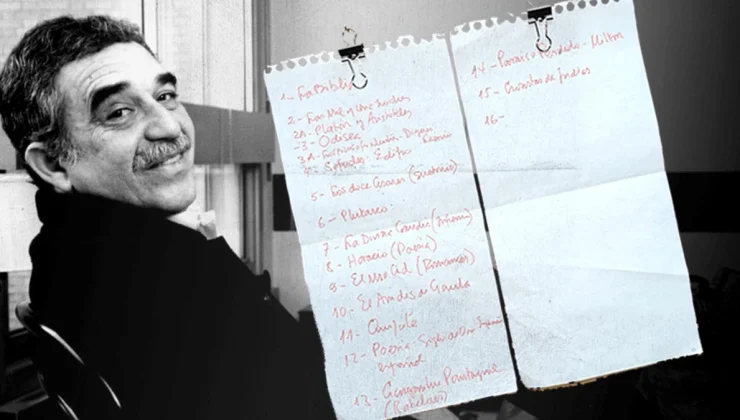 1- La Biblia
2- Las Mil y Una Noches
2A- Platón y Aristóteles
3- Odisea
3A-
4- Sófocles: Edipo
5- Los doce Césares (Suetonio)
6- Plutarco:
7- La Divina Comedia (
8- Horacio (Poesía)
9- El Mio Cid (Romances)
10- El Amadis de Gaula
11- Quijote
12- Poesía Siglo de Oro
español
13- Gargantúa Pantagruel
(Rabelais)
14- Paraiso Perdido - Milton
15- Cronistas de Indias
16-